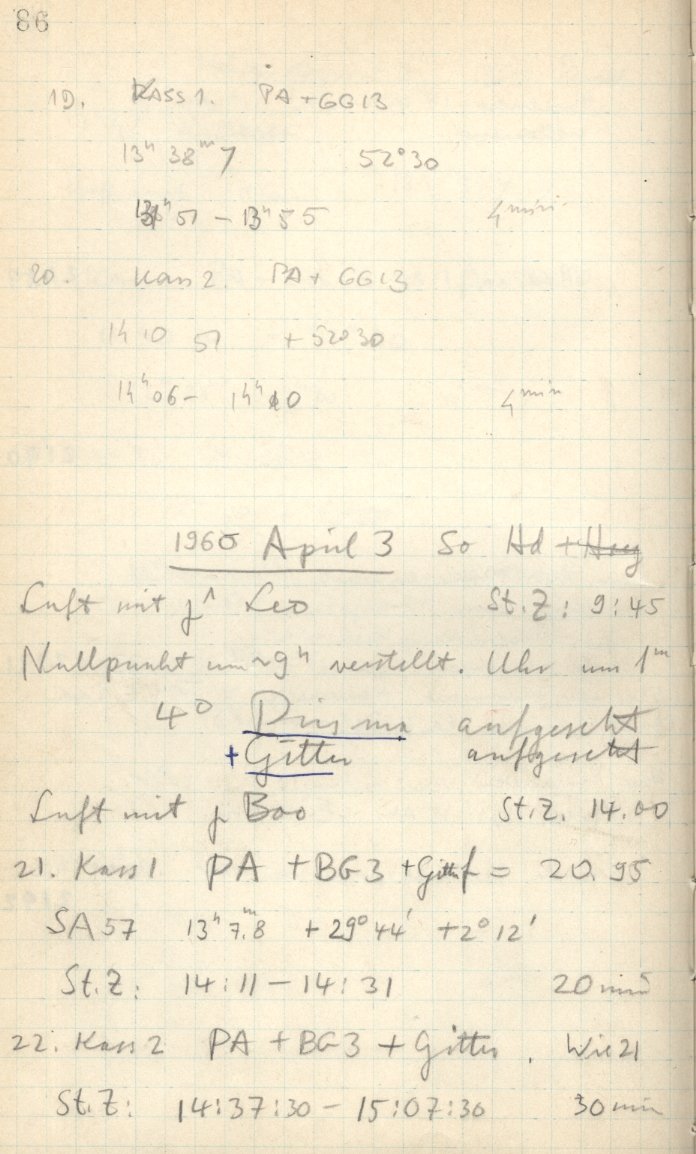 86
19. Kass 1. PA + GG13
13ʰ 38ᵐ 7 52°30
13ʰ 51 – 13ʰ 55 4 min
20. Kass 2. PA + GG13
14 10 51 +52°30
14ʰ06 – 14ʰ10 4 min
1960 April 3 So Hd + Hug
Luft mit γ¹ Leo St.Z: 9:45
Nullpunkt um ~9ʰ verstellt. Uhr um 1ᵐ
4° Prisma aufgesetzt
+ Gitter aufgesetzt
Luft mit Boo St.Z. 14.00
21. Kass 1 PA + BG3 + Gitt f = 20.95
SA57 13ʰ 7.ᵐ8 +29°44' +2°12'
St.Z: 14:11 – 14:31 20 min
22. Kass 2 PA + BG3 + Gitter. Wie 21
St.Z: 14:37:30 – 15:07:30 30 min